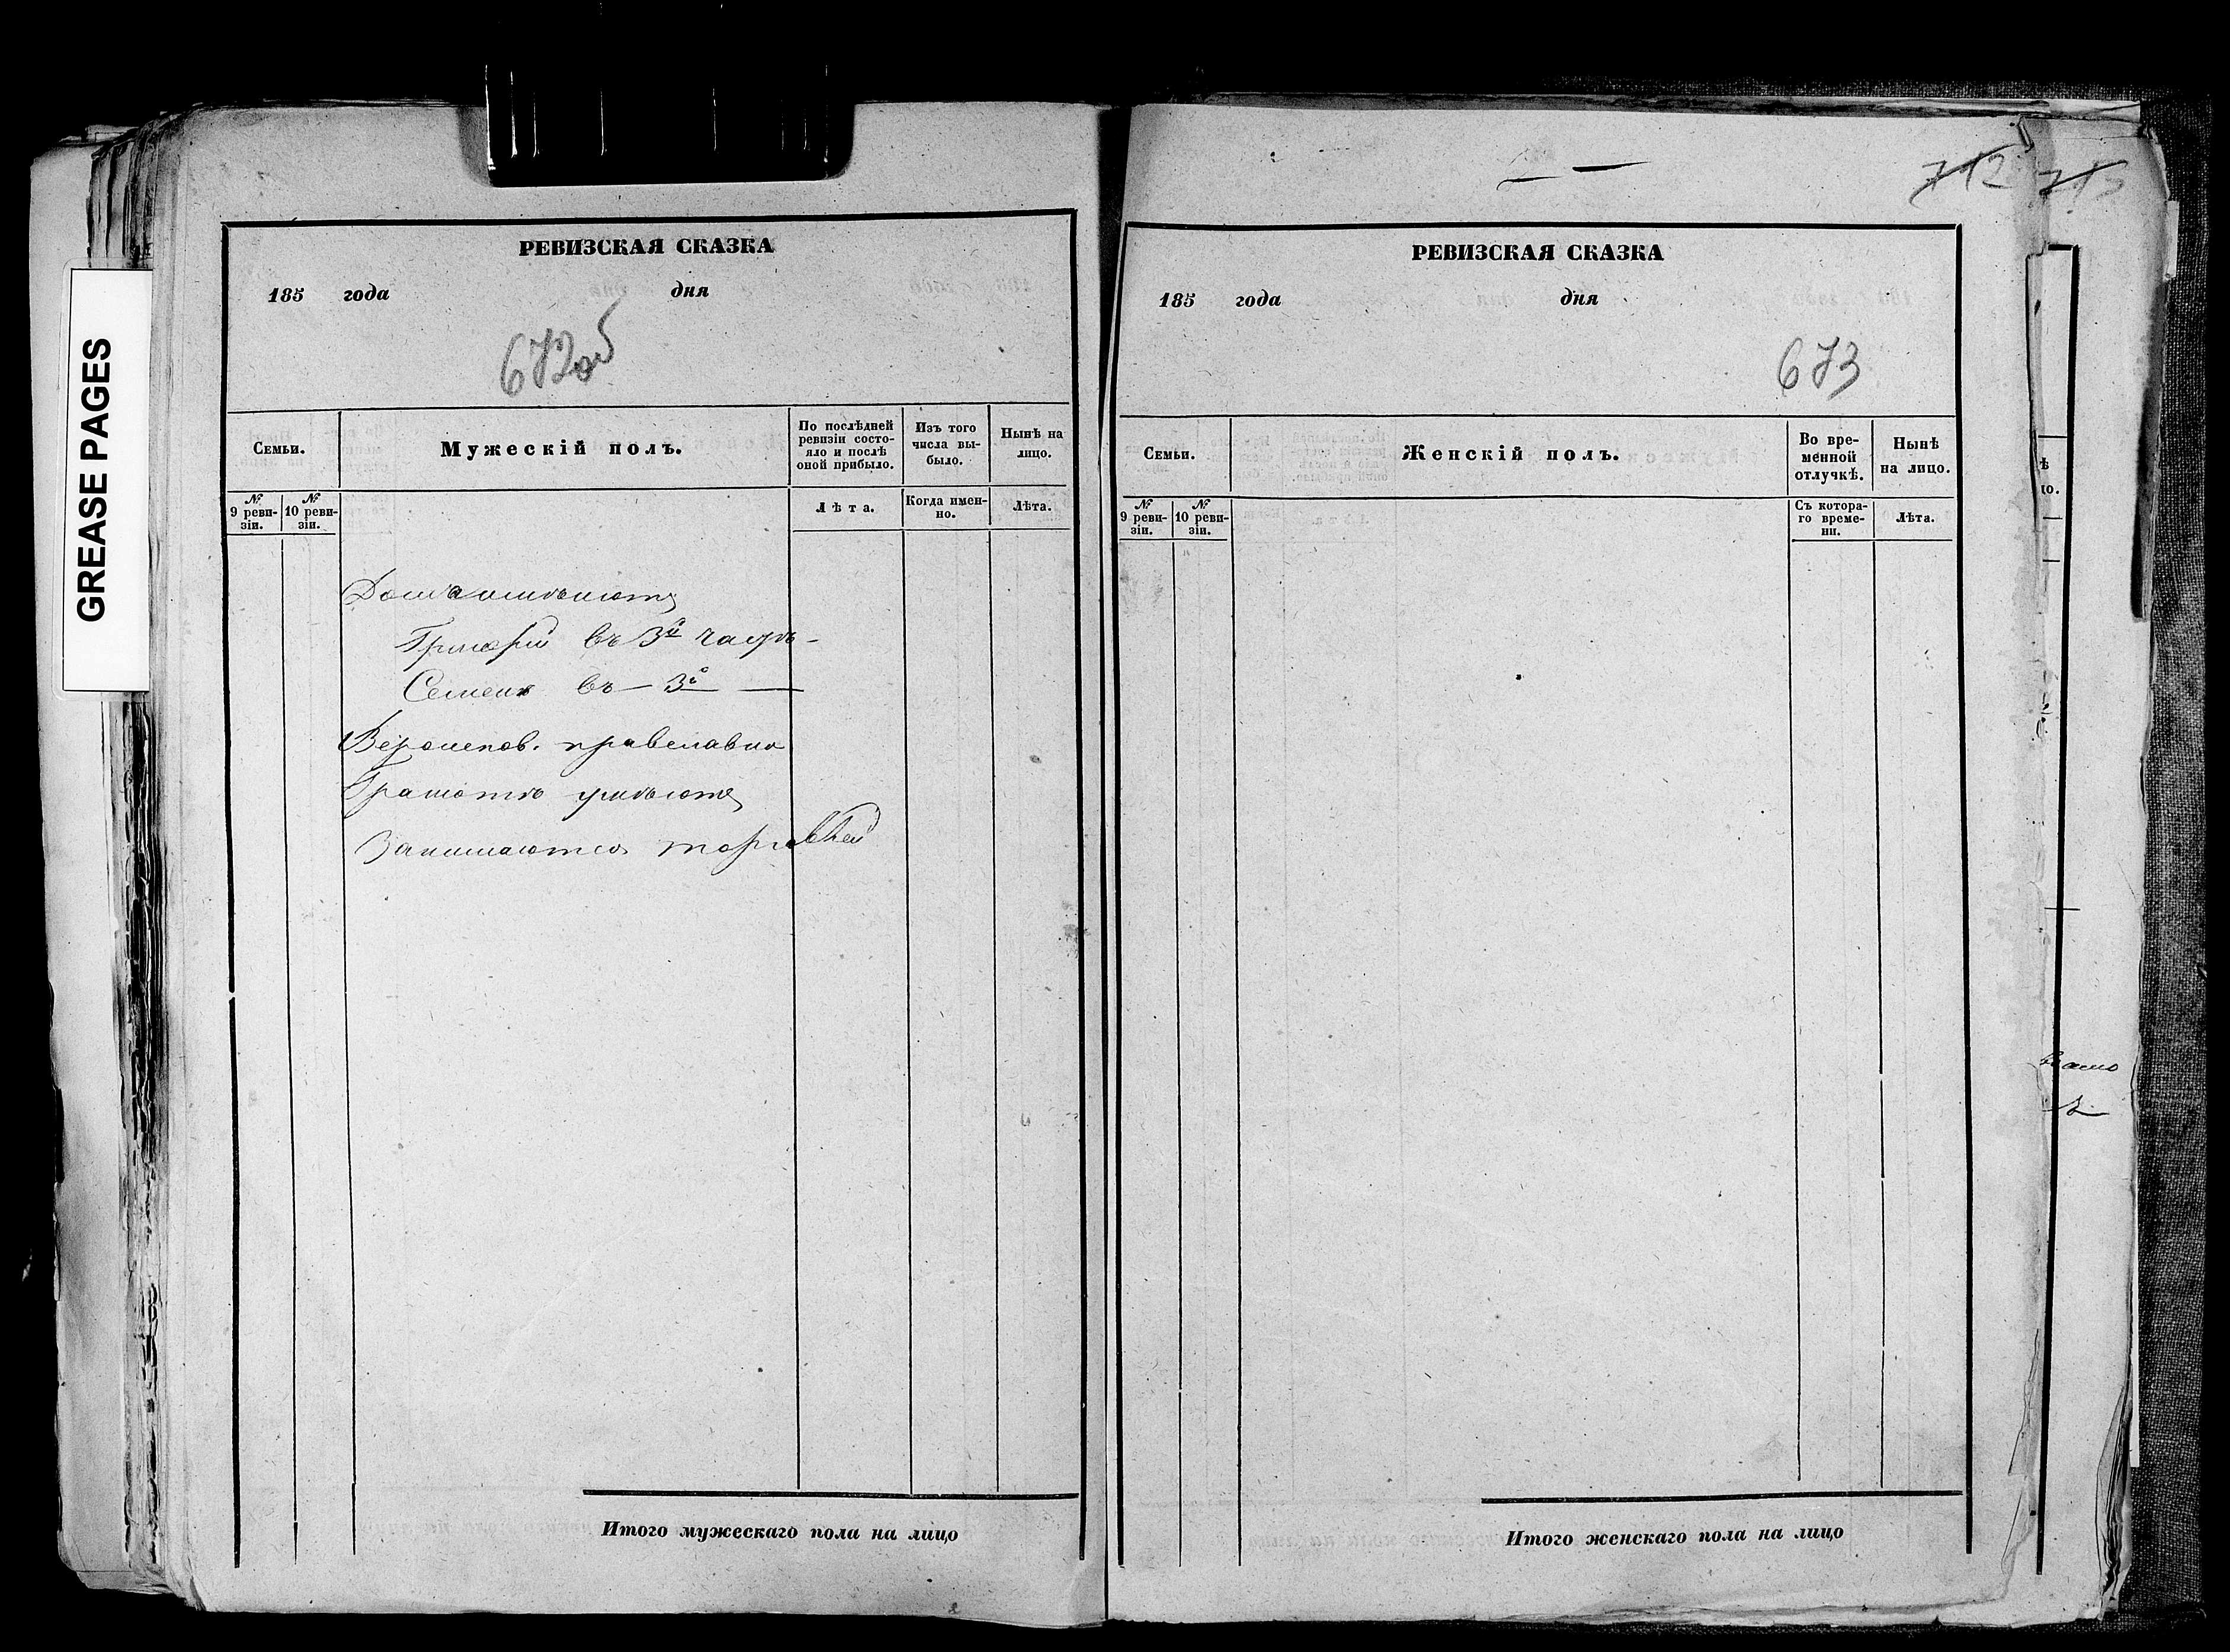 GREASE PAGES
РЕВИЗСКАЯ СКАЗКА
185 года дня
672об
Семьи.
Мужескій полъ.
По послѣдней ревизіи состояло и послѣ оной прибыло.
Изъ того числа выбыло.
Нынѣ на лицо.
№ 9 ревизіи.
№ 10 ревизіи.
Лѣта.
Когда именно.
Лѣта.
Дома имѣютъ
Григорій въ 3й части
Семенъ въ — 3й —
Вѣроисповѣ. православно
Грамотѣ умѣютъ
Занимаются торговлей
Итого мужескаго пола на лицо
712
713
РЕВИЗСКАЯ СКАЗКА
185 года дня
673
Семьи.
Женскій полъ.
Во временной отлучкѣ.
Нынѣ на лицо.
№ 9 ревизіи.
№ 10 ревизіи.
Съ котораго времени.
Лѣта.
Итого женскаго пола на лицо